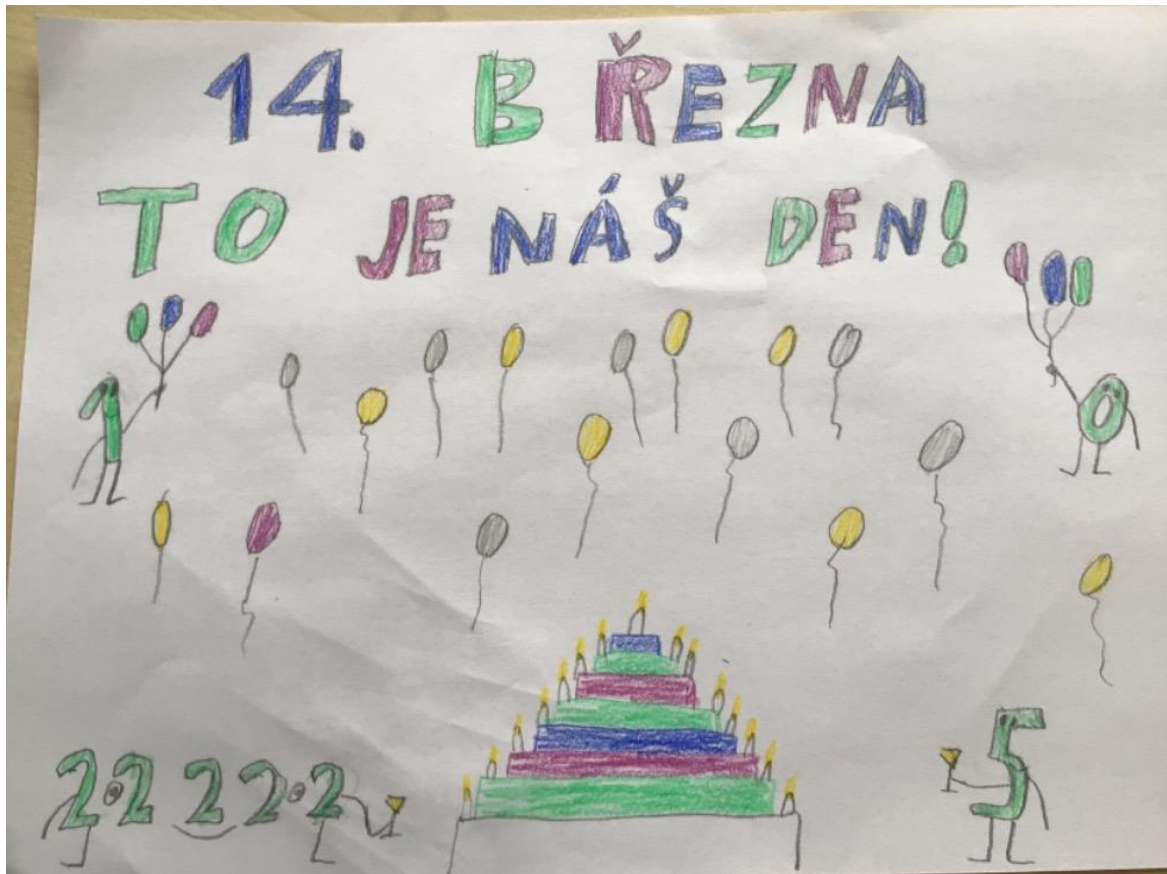 14. BŘEZNA
TO JE NÁŠ DEN!
1
0
2 2 2 2 2
5